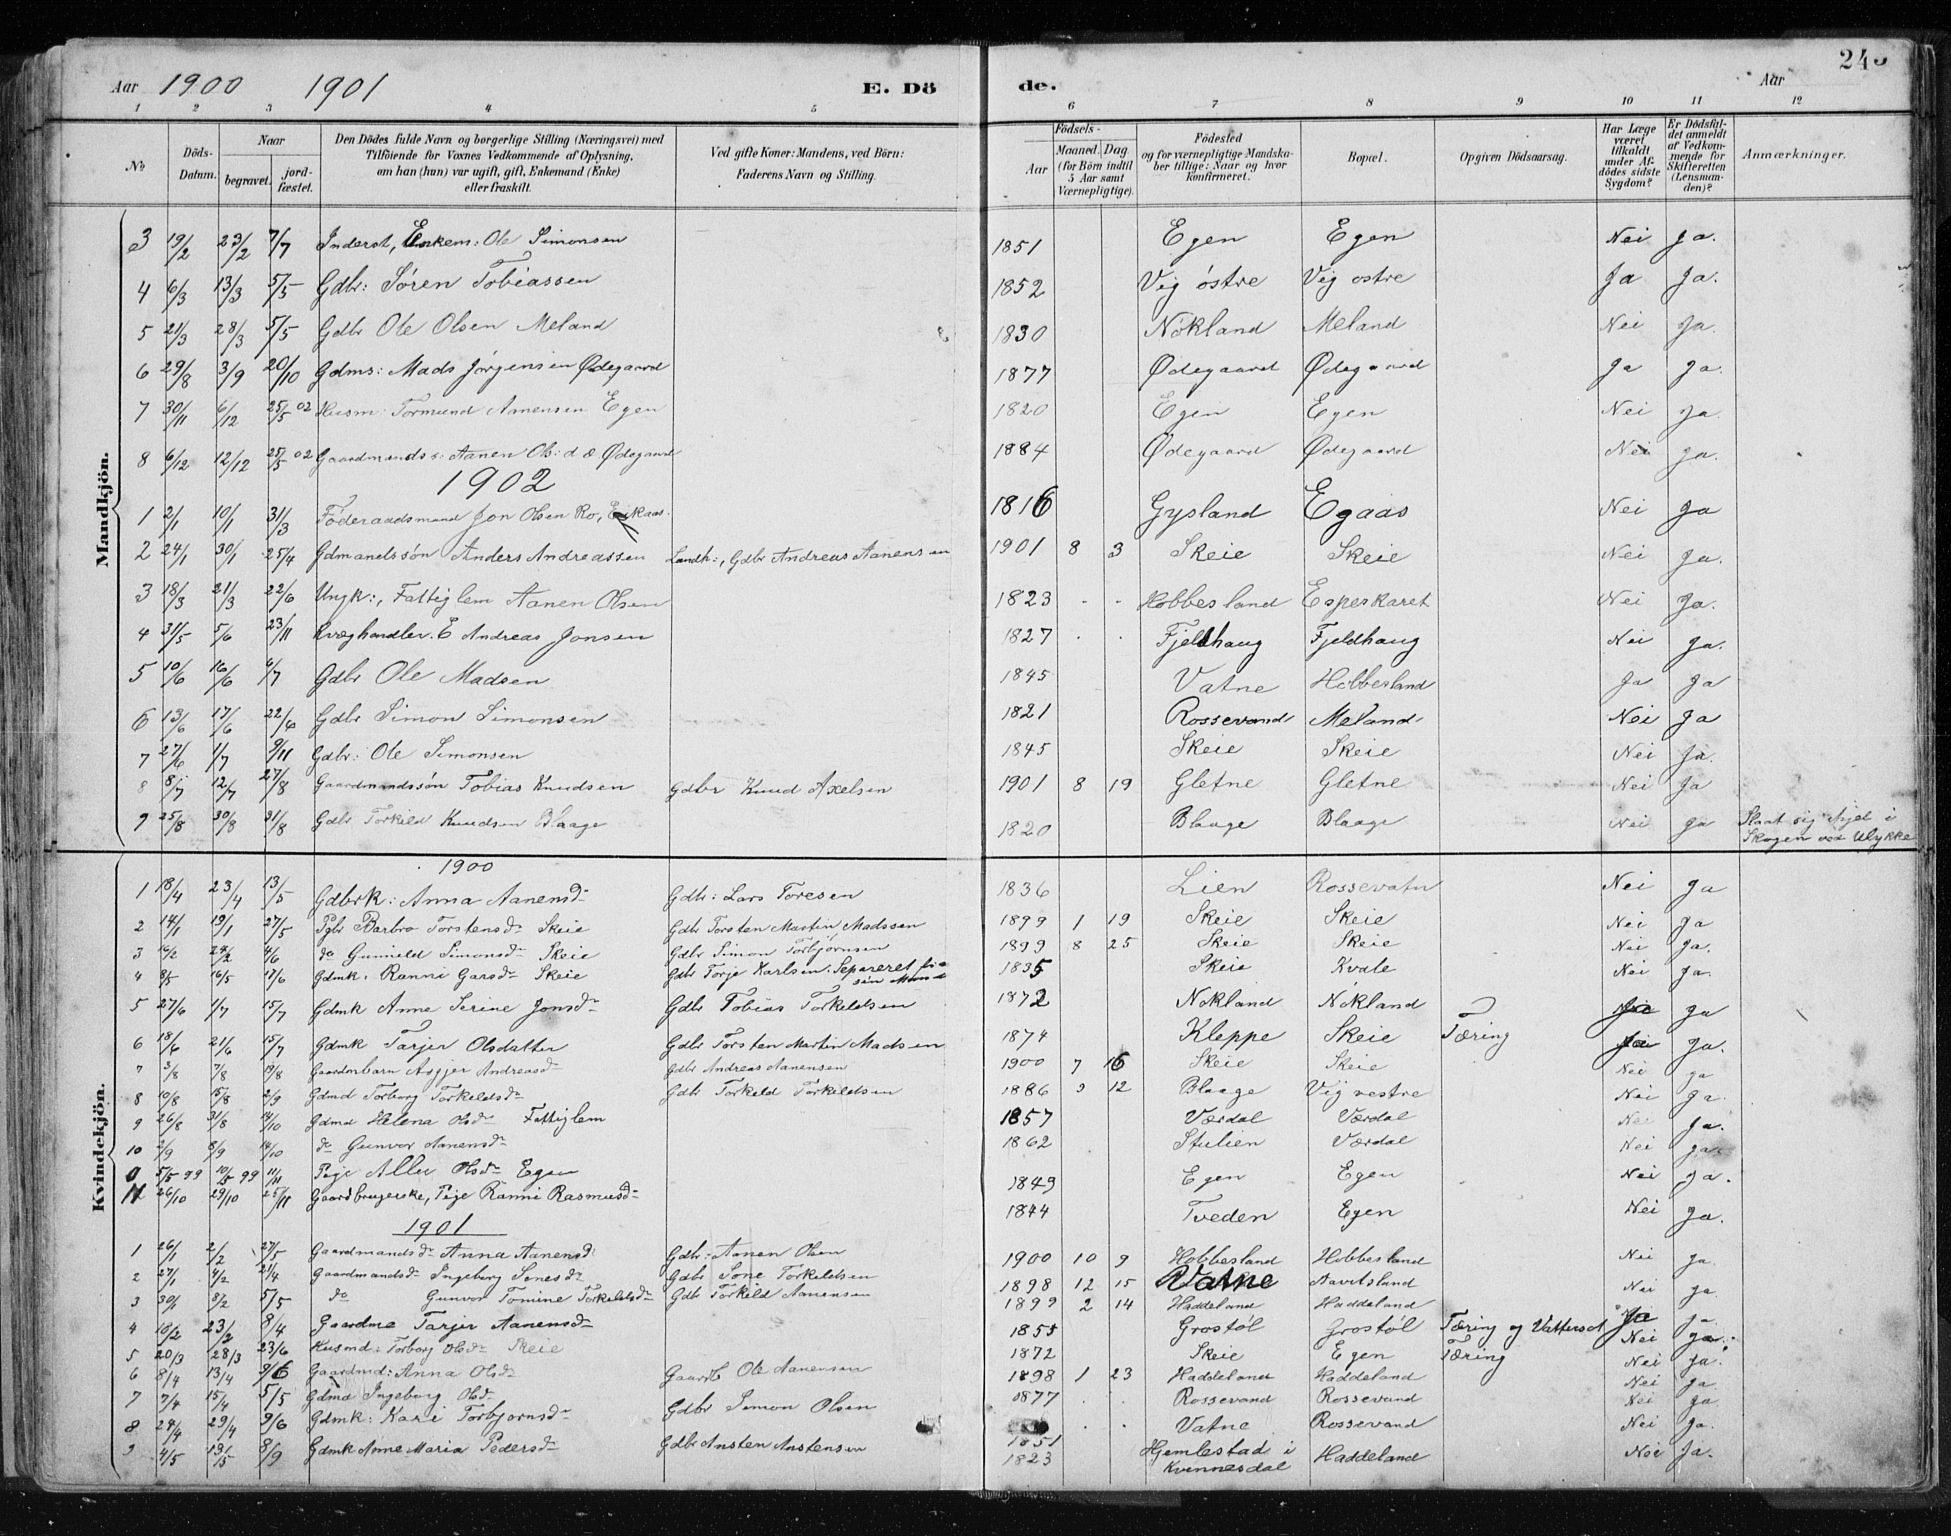 Aar 1900 1901 E. Dö de. Aar 243
1 2 3 4 5 6 7 8 9 10 11 12
No Döds-Datum. Naar begravet. jordfæstet. Den Dödes fulde Navn og borgerlige Stilling (Næringsvei) med Tilföiende for Voxnes Vedkommende af Oplysning, om han (hun) var ugift, gift, Enkemand (Enke) eller fraskilt. Ved gifte Koner: Mandens, ved Börn: Faderens Navn og Stilling. Födsels- Aar Maaned. Dag (for Börn indtil 5 Aar samt Værnepligtige). Födested og for værnepligtige Mandskaber tillige: Naar og hvor konfirmeret. Bopæl. Opgiven Dödsaarsag. Har Læge været tilkaldt under Afdödes sidste Sygdom? Er Dödsfaldet anmeldt af Vedkommende for Skifteretten (Lensmanden)? Anmærkninger.
Mandkjön.
3 19/2 23/2 7/7 Inderst, Enkem: Ole Simonsen 1851 Egen Egen Nei Ja.
4 6/3 13/3 5/5 Gdbr: Sören Tobiassen 1852 Vig östre Vig ostre Ja Ja.
5 21/3 28/3 5/5 Gdbr Ole Olsen Meland 1830 Nökland Meland Nei Ja.
6 29/8 3/9 20/10 Gdms: Mads Jörgensen Ødegaard 1877 Ødegaard Ødegaard Ja Ja.
7 30/11 6/12 25/5 02 Husm: Tormund Aanensen Egen 1820 Egen Egen Nei Ja.
8 6/12 12/12 25/5 02 Gaardmands s: Aanen Ols: d.æ. Ødegaard 1884 Ødegaard Ødegaard Nei Ja.
1902
1 2/1 10/1 31/3 Föderaadsmand Jon Olsen Ro, 1816 Gysland Egaas Nei Ja
2 24/1 30/1 25/4 Gdmandssön Anders Andreassen Landh:, Gdbr Andreas Aanensen 1901 8 3 Skeie Skeie Nei Ja.
3 18/3 21/3 22/6 Ungk:, Fattiglem Aanen Olsen 1823 - - Hobbesland Espeskaret Nei Ja.
4 31/5 5/6 23/11 Kvæghandler. E Andreas Jonsen 1827 . . Fjeldhaug Fjeldhaug Nei Ja.
5 10/6 16/6 6/7 Gdbr Ole Madsen 1845 Vatne Hobbesland Ja Ja
6 13/6 17/6 22/6 Gdbr Simon Simonsen 1821 Rossevand Meland Nei Ja
7 27/6 1/7 9/11 Gdbr: Ole Simonsen 1845 Skeie Skeie Nei Ja.
8 8/7 12/7 27/8 Gaardmandssön Tobias Knudsen Gdbr Knud Axelsen 1901 8 19 Gletne Gletne Nei Ja
9 25/8 30/8 31/8 Gdbr Torkild Knudsen Blaage 1820 Blaage Blaage Nei Ja Slaat sig ihjel i
Skogen ved Ulykke
Kvindekjön.
1900
1 18/4 23/4 13/5 Gdbrk: Anna Aanensd- Gdbr: Lars Toresen 1836 Lien Rossevatn Nei Ja
2 14/1 19/1 27/5 Pgbr Barbro Torstensd- Skeie Gdb Torsten Martin Madssen 1899 1 19 Skeie Skeie Nei Ja
3 16/2 24/2 4/6 do Gunnild Simonsd- Skeie Gdbr Simon Torbjørnsen 1899 8 25 Skeie Skeie Nei Ja.
4 8/5 16/5 17/6 Gdmk: Ranni Garsd- Skeie Gdbr Torje Karlsen. Separeret fra
sin Mand 1835 Skeie Kvale Nei Ja.
5 27/6 1/7 15/7 Gdmk Anne Serine Jonsd- Gdbr Tobias Torkeldsen 1872 Nokland Nökland Ja Ja
6 18/6 21/6 15/7 Gdmk Tarjer Olsdatter Gdbr Torsten Martin Madsen 1874 Kleppe Skeie Tæring Ja Ja.
7 3/8 7/8 19/8 Gaardmbarn Asgjer Andreasd- Gdb Andreas Aanensen 1900 7 16 Skeie Skeie Nei Ja
8 10/8 15/8 2/9 Gdmd Torborg Torkeldsd- Gdb Torkeld Torkeldsen 1886 9 12 Blaage Vig vestre Nei Ja.
9 26/8 31/8 14/10 Gdmd Helena Olsd- Fattiglem 1857 Værdal Værdal Nei Ja.
10 2/9 8/9 14/10 do Gunvor Aanensd- 1862 Stulien Værdal Nei Ja.
0 5/5 99 10/5 99 11/11 Pige Allu Olsd- Egen 1849 Egen Egen Nei Ja.
11 26/10 29/10 25/11 Gaardbrugerske, Pige Ranni Rasmusd- 1844 Tveden Egen Nei Ja.
1901
1 26/1 2/2 27/5 Gaardmandsd- Anna Aanensd- Gdbr: Aanen Olsen 1900 10 9 Hobbesland Hobbesland Nei Ja.
2 27/1 4/2 21/4 Gaardmandsd- Ingeborg Sonesd- Gdbr Sone Torkeldsen 1898 12 15 Vatne Navitsland Nei Ja
3 30/1 8/2 5/5 do Gunvor Tomine Torkeldsd- Gdb Torkeld Aanensen 1899 2 14 Haddeland Haddeland Ja Ja
4 16/2 23/2 8/4 Gaardme Tarjer Aanensd- 1855 Grostøl Grostøl Tæring og Vattersot Nei Ja.
5 20/3 28/3 23/6 Husmd: Torborg Olsd- Skeie 1872 Skeie Egen Tæring Nei Ja.
6 8/4 13/4 9/6 Gaardmd: Anna Olsd- Gaardb Ole Aanensen 1898 1 23 Haddeland Haddeland Nei Ja
7 7/4 15/4 5/5 Gdmd Ingeborg Olsd- 1877 . . Rossevand Rossevand Nei Ja
8 24/4 29/4 9/6 Gdmk: Kari Torbjornsd- Gdbr Simon Olsen 1851 . Vatne Rossevand Nei Ja.
9 4/5 13/5 8/9 Gdmk Anne Maria Pedersd- Gdbr Ansten Anstensen 1823 Hjemlestad i
Kvinnesdal Haddeland Nei Ja.